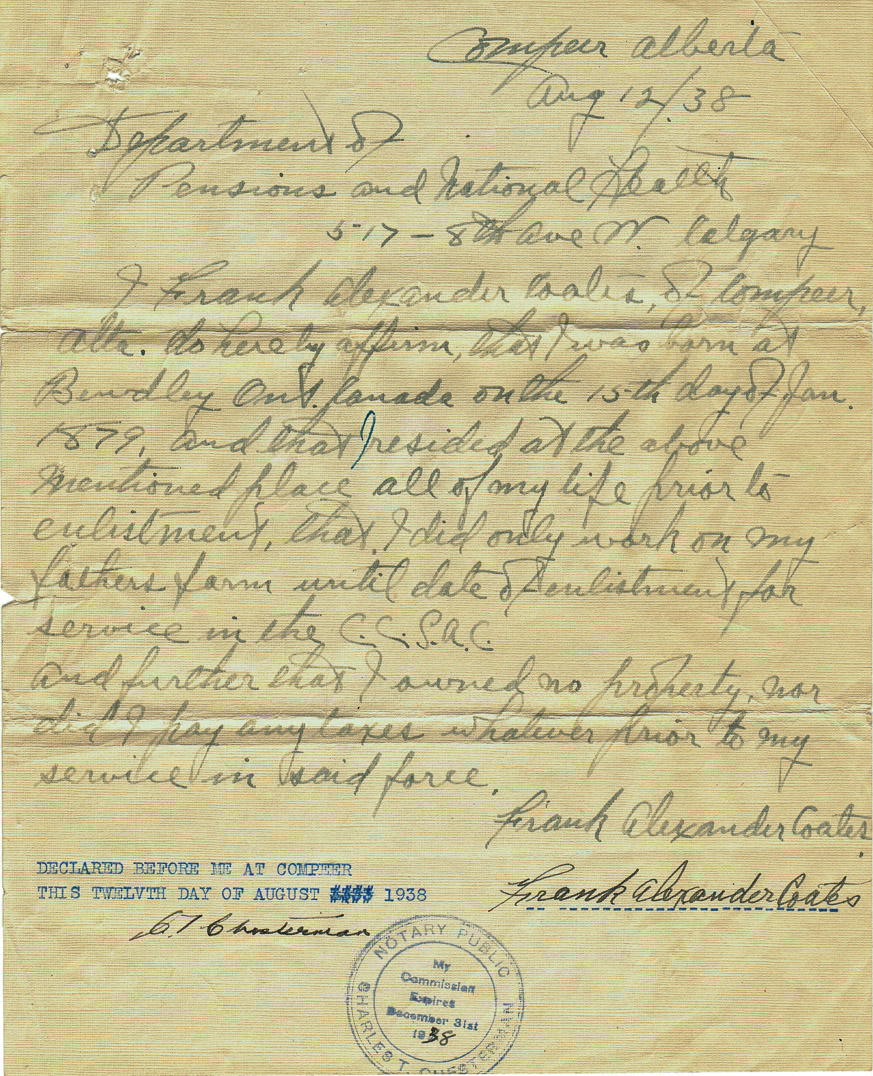 Compeer Alberta
Aug 12/38
Department of
Pensions and National Health
517 - 8th Ave W. Calgary
I Frank Alexander Coates, of Compeer,
Alta. do hereby affirm, that I was born at
Bewdley Ont. Canada on the 15th day of Jan.
1879, and that I resided at the above
mentioned place all of my life prior to
enlistment, that I did only work on my
fathers farm until date of enlistment for
service in the C.C.S.A.C.
and further that I owned no property, nor
did I pay any taxes whatever prior to my
service in said force.
Frank Alexander Coates.
DECLARED BEFORE ME AT COMPEER
THIS TWELVTH DAY OF AUGUST 1938
Frank Alexander Coates
C T Chesterman
NOTARY PUBLIC
My
Commission
Expires
December 31st
1938
CHARLES T. CHESTERMAN